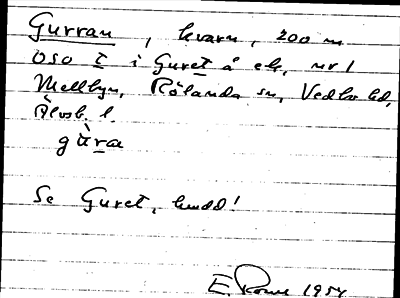 Gurran, kvarn, 200 m
OSO t i Guret å ek, nr 1
Mellbyn, Rölanda sn, Vedbo hd,
Älvsb. l.
gùra
Se Guret, hudd!
E. 1954